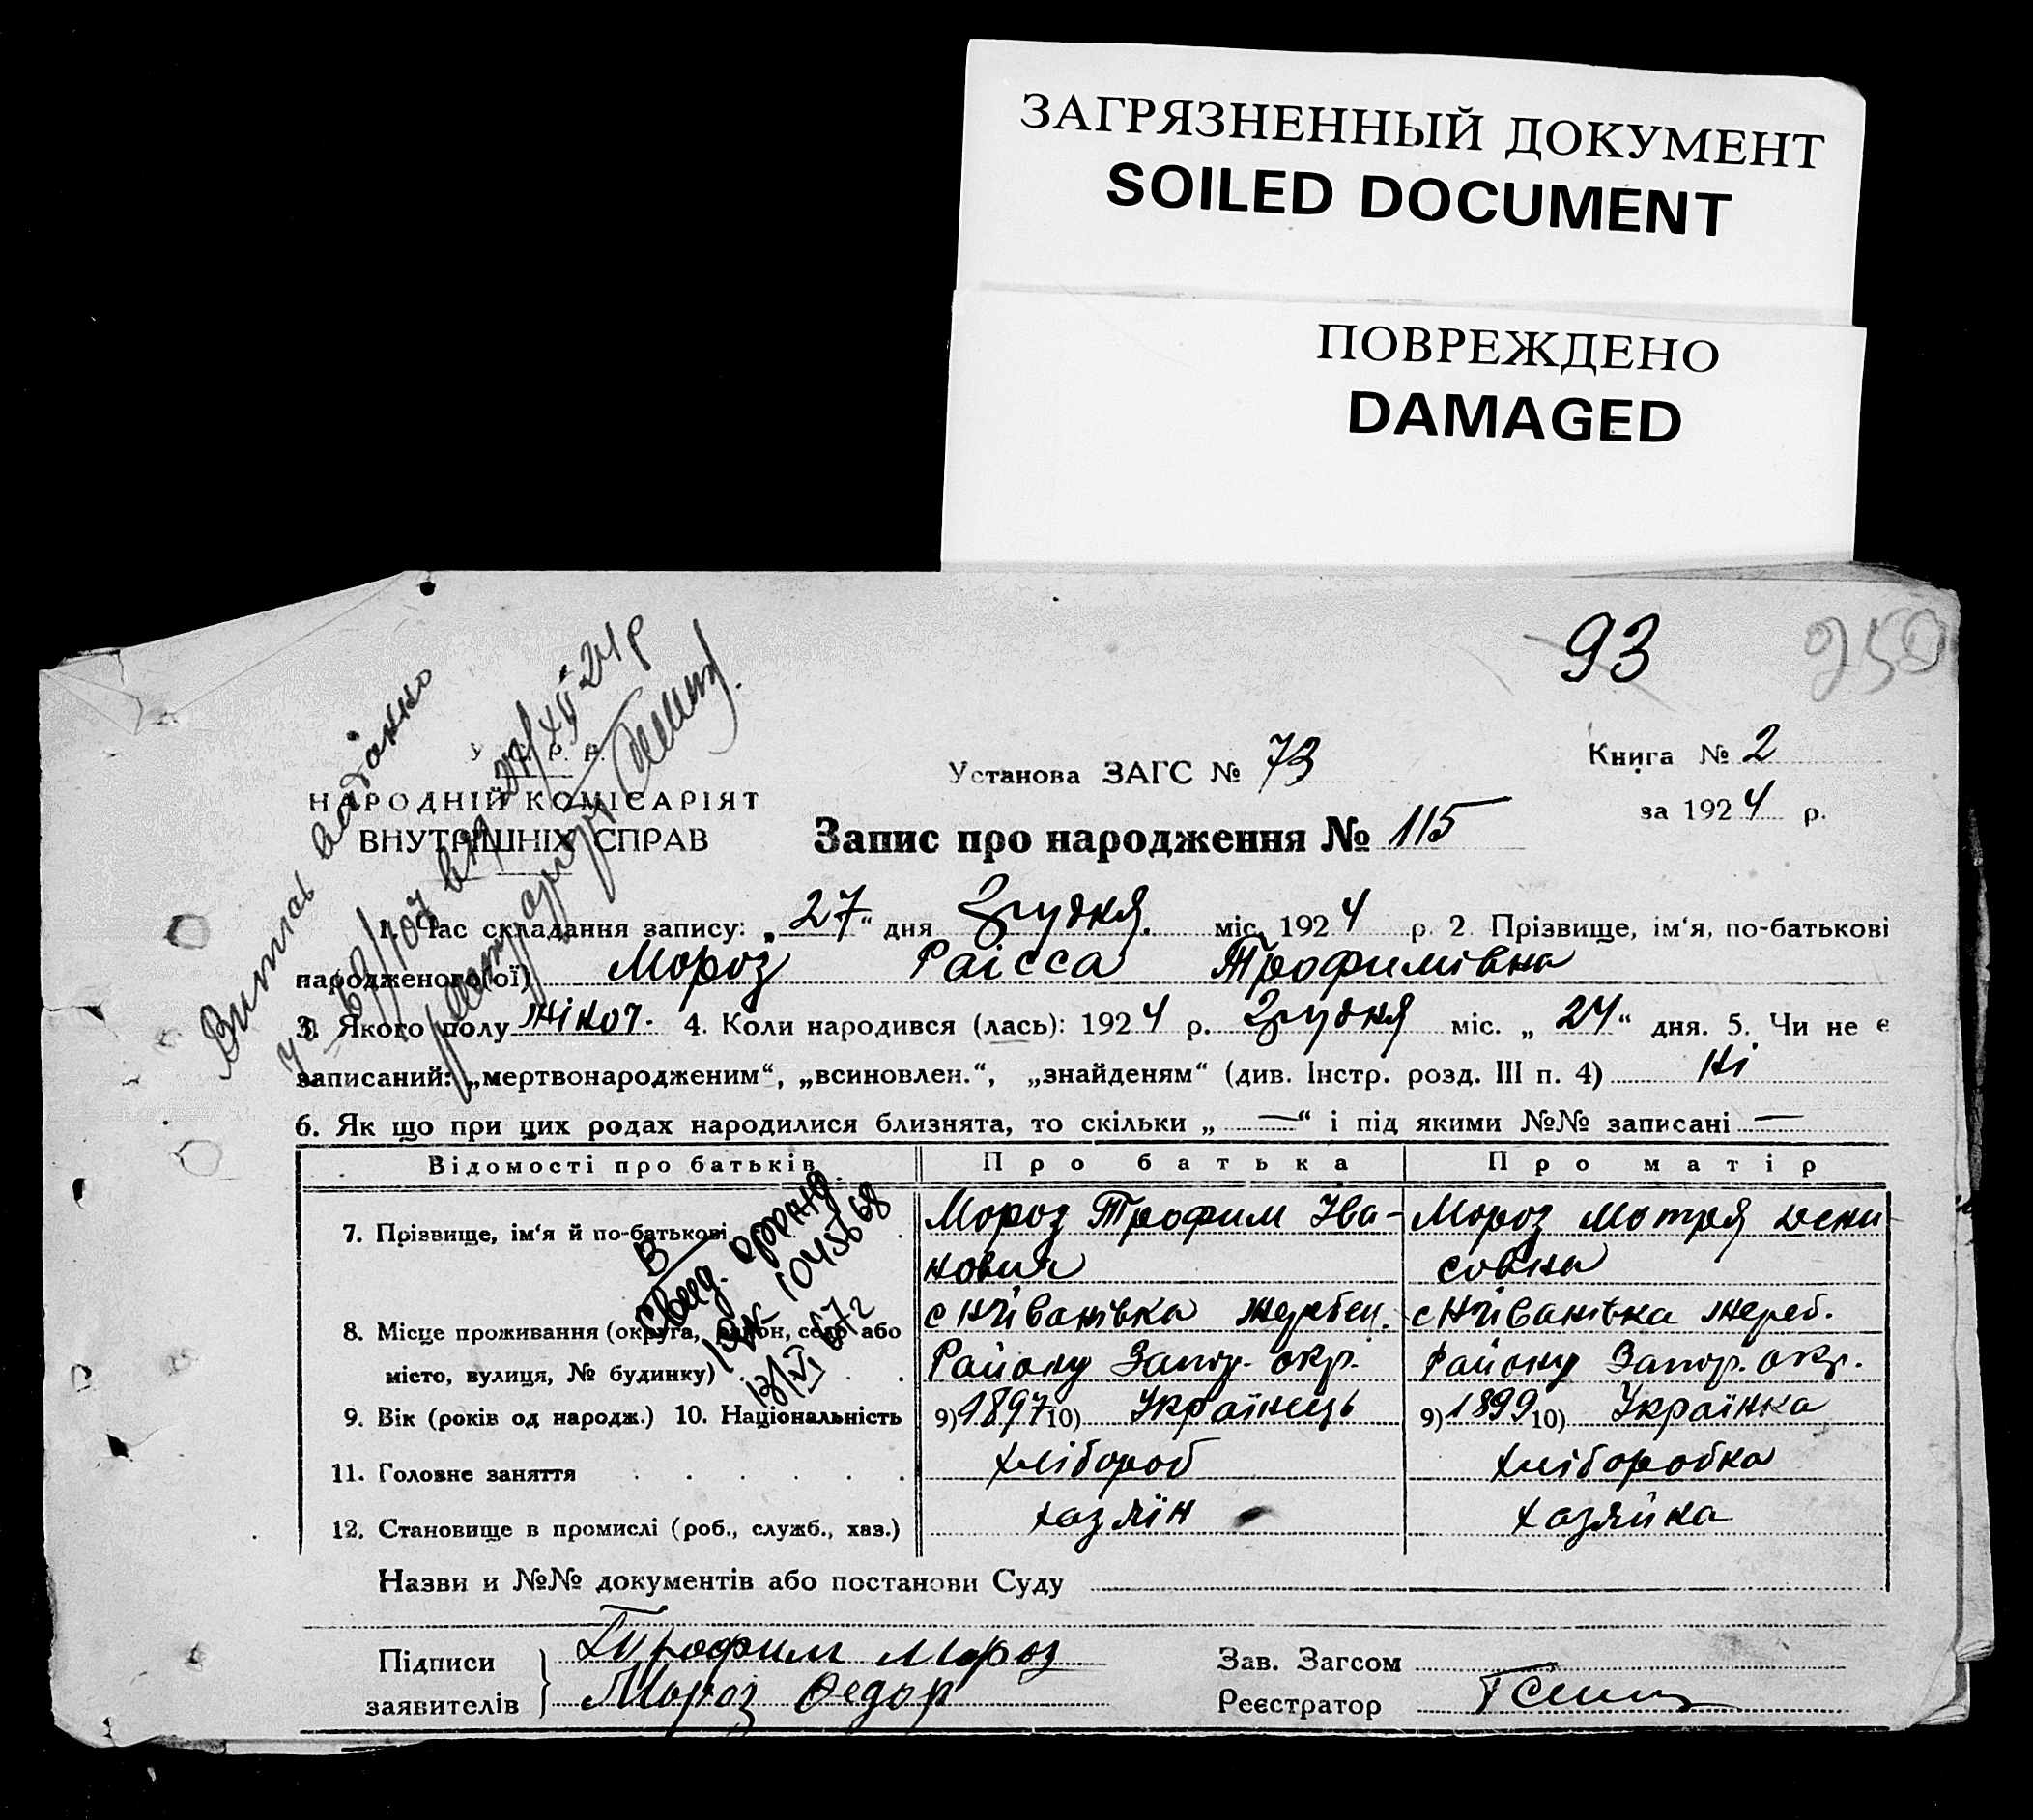 ЗАГРЯЗНЕННЫЙ ДОКУМЕНТ
SOILED DOCUMENT
ПОВРЕЖДЕНО
DAMAGED
93
Витяг видано
27/XII 24 р
У. С. Р. Р.
НАРОДНІЙ КОМІСАРІЯТ
ВНУТРІШНІХ СПРАВ
Установа ЗАГС № 73
Книга № 2
за 1924 р.
Запис про народження № 115
1. Час складання запису: „27“ дня Грудня міс. 1924 р. 2. Прізвище, ім‘я, по-батькові
народженого(ої) Мороз Раісса Трофимівна
3. Якого полу жіноч. 4. Коли народився (лась): 1924 р. Грудня міс. „24“ дня. 5. Чи не є
записаний: „мертвонародженим“, „всиновлен.“, „знайденям“ (див. Інстр. розд. III п. 4) Ні
6. Як що при цих родах народилися близнята, то скільки „ — “ і під якими №№ записані —
Відомості про батьків Про батька Про матір
7. Прізвище, ім‘я й по-батькові Мороз Трофим Іва- Мороз Мотря Дени-
нович совна
8. Місце проживання (округа, район, село або с Н-Иванівка Жеребец. с Н-Иванівка Жереб.
місто, вулиця, № будинку) Району Запор. окр. Району Запор. окр.
9. Вік (років од народж.) 10. Національність 9) 1897 10) Українець 9) 1899 10) Українка
11. Головне заняття хлібороб хлиборобка
12. Становище в промислі (роб., служб., хаз.) хазяін хазяйка
Назви и №№ документів або постанови Суду
Підписи Трофим Мороз Зав. Загсом
заявителів Мороз Федор Реєстратор